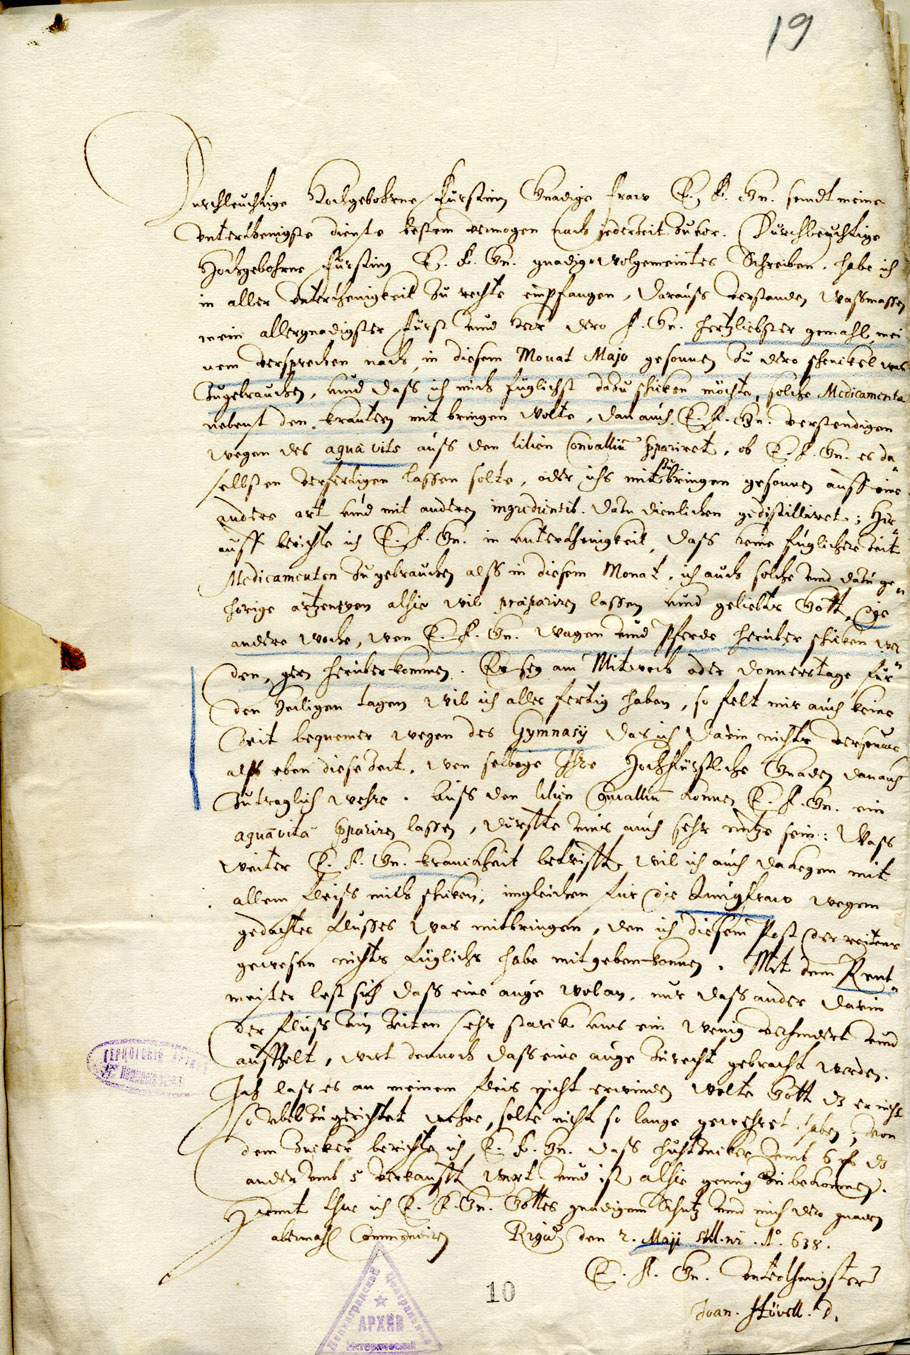 19
Durchleuchtige Hochgebohrne Furstinn Gnadige fraw E. F. Gn. seindt meine
unterthenigste dienste bestem vermogen nach jederzeit zuvor. Durchleuchtige
Hochgebohrne furstinn E. F. Gn. gnadig wolgemeintes Schreiben, habe ich
in aller unterthenigkeit zu rechte empfangen, darauss verstanden wassmassen
mein allergnadigster furst und herr dero F. Gn. hertzliebster gemahl, mei
nem versprechen nach, in diesem Monat Majo gesonnen zu dero schenckel was
zugebrauchen, und dass ich mich fuglichst dazu schicken mochte, solche Medicamenta
nebenst den krautern mit bringen wolte, dan auch E. F. Gn. verstendigen
wegen des aqua vite auss den lilien Convallium, ob E. F. Gn. es da
selbsten verfertigen lassen solte, oder ichs mitzubringen gesonnen auff eine
andere art und mit anderen ingredientis dazu dienlichen gedistilliret; Hir
auff berichte ich E. F. Gn. in unterthenigkeit, dass keine fuglichere zeit
Medicamenten zu gebrauchen alss in diesem Monat, ich auch solche und dazu ge
horige artzneyen alhie wil præpariren lassen und geliebts Gott, die
andere woche, wen E. F. Gn. wagen und Pferde heruber schicken wer
den, gern heruberkommen. Es sey am Mitwoch oder Donnerstage, fur
den Heiligen tagen wil ich alles fertig haben, so felt mir auch keine
Zeit bequemer wegen des Gymnasij das ich darin nichts verseume
alss eben diese zeit, wen selbige Ihre Hochfürstliche Gnaden danach
zutraglich wehre. Auss den lilien Convallium konnen E. F. Gn. ein
aquavita lassen, durffte ihnen auch sehr nutze sein: Wass
weiter E. F. Gn. kranckheit betrifft, wil ich auch dakegen mit
allem fleiss mich schicken, imgleichen fur die Jungfraw wegen
gedachtes flusses was mitbringen, den ich diesem Post der reitens
gewesen nichts fuglichs habe mitgeben konnen. Mit dem Rent
meister lest sich dass eine auge wol an, nur dass ander darin
der fluss zun zeiten sehr starck uns ein wenig verhindert und
auffhelt, wirt dennoch dass eine auge zurecht gebracht werden.
Ich lass es an meinem fleis nicht erwinden wolte Gott dz er nicht
so ubel zugerichtet wehre, solte nicht so lange gewehret haben; Von
dem Zucker berichte ich E. F. Gn. dass hutzucker umb 6 dz
ander umb 5 verkaufft wert und ist alhie genug zu bekommen.
Hiemit thue ich E. F. Gn. Gottes gnadigem Schutz und mich dero gnaden
abermahl Commendiren Riga den 2. Maji A. 638.
E. F. Gn. unterthenigster
Joan. Hövell. D.
10
АРХИВ